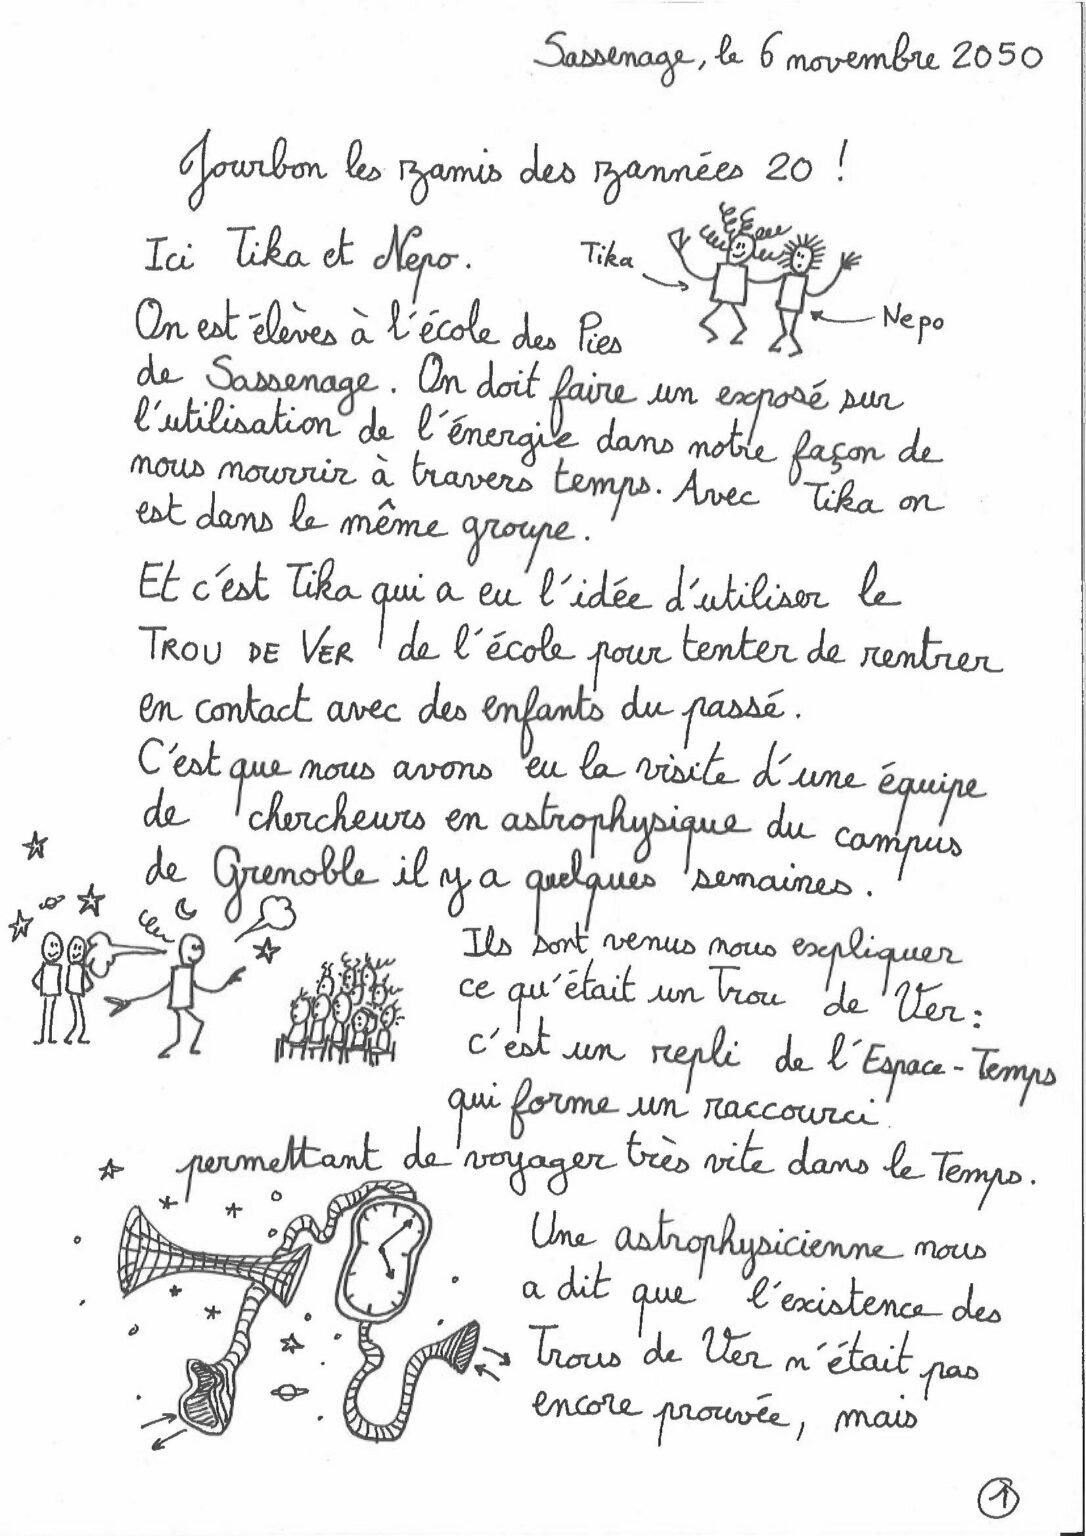 Sassenage, le 6 novembre 2050
Jourbon les zamis des zannées 20 !
Ici Tika et Nepo.
Tika
Nepo
On est élèves à l'école des Pies
de Sassenage. On doit faire un exposé sur
l'utilisation de l'énergie dans notre façon de
nous nourrir à travers temps. Avec Tika on
est dans le même groupe.
Et c'est Tika qui a eu l'idée d'utiliser le
TROU DE VER de l'école pour tenter de rentrer
en contact avec des enfants du passé.
C'est que nous avons eu la visite d'une équipe
de chercheurs en astrophysique du campus
de Grenoble il y a quelques semaines.
Ils sont venus nous expliquer
ce qu'était un Trou de Ver :
c'est un repli de l'Espace-Temps
qui forme un raccourci
permettant de voyager très vite dans le Temps.
Une astrophysicienne nous
a dit que l'existence des
Trous de Ver n'était pas
encore prouvée, mais
1